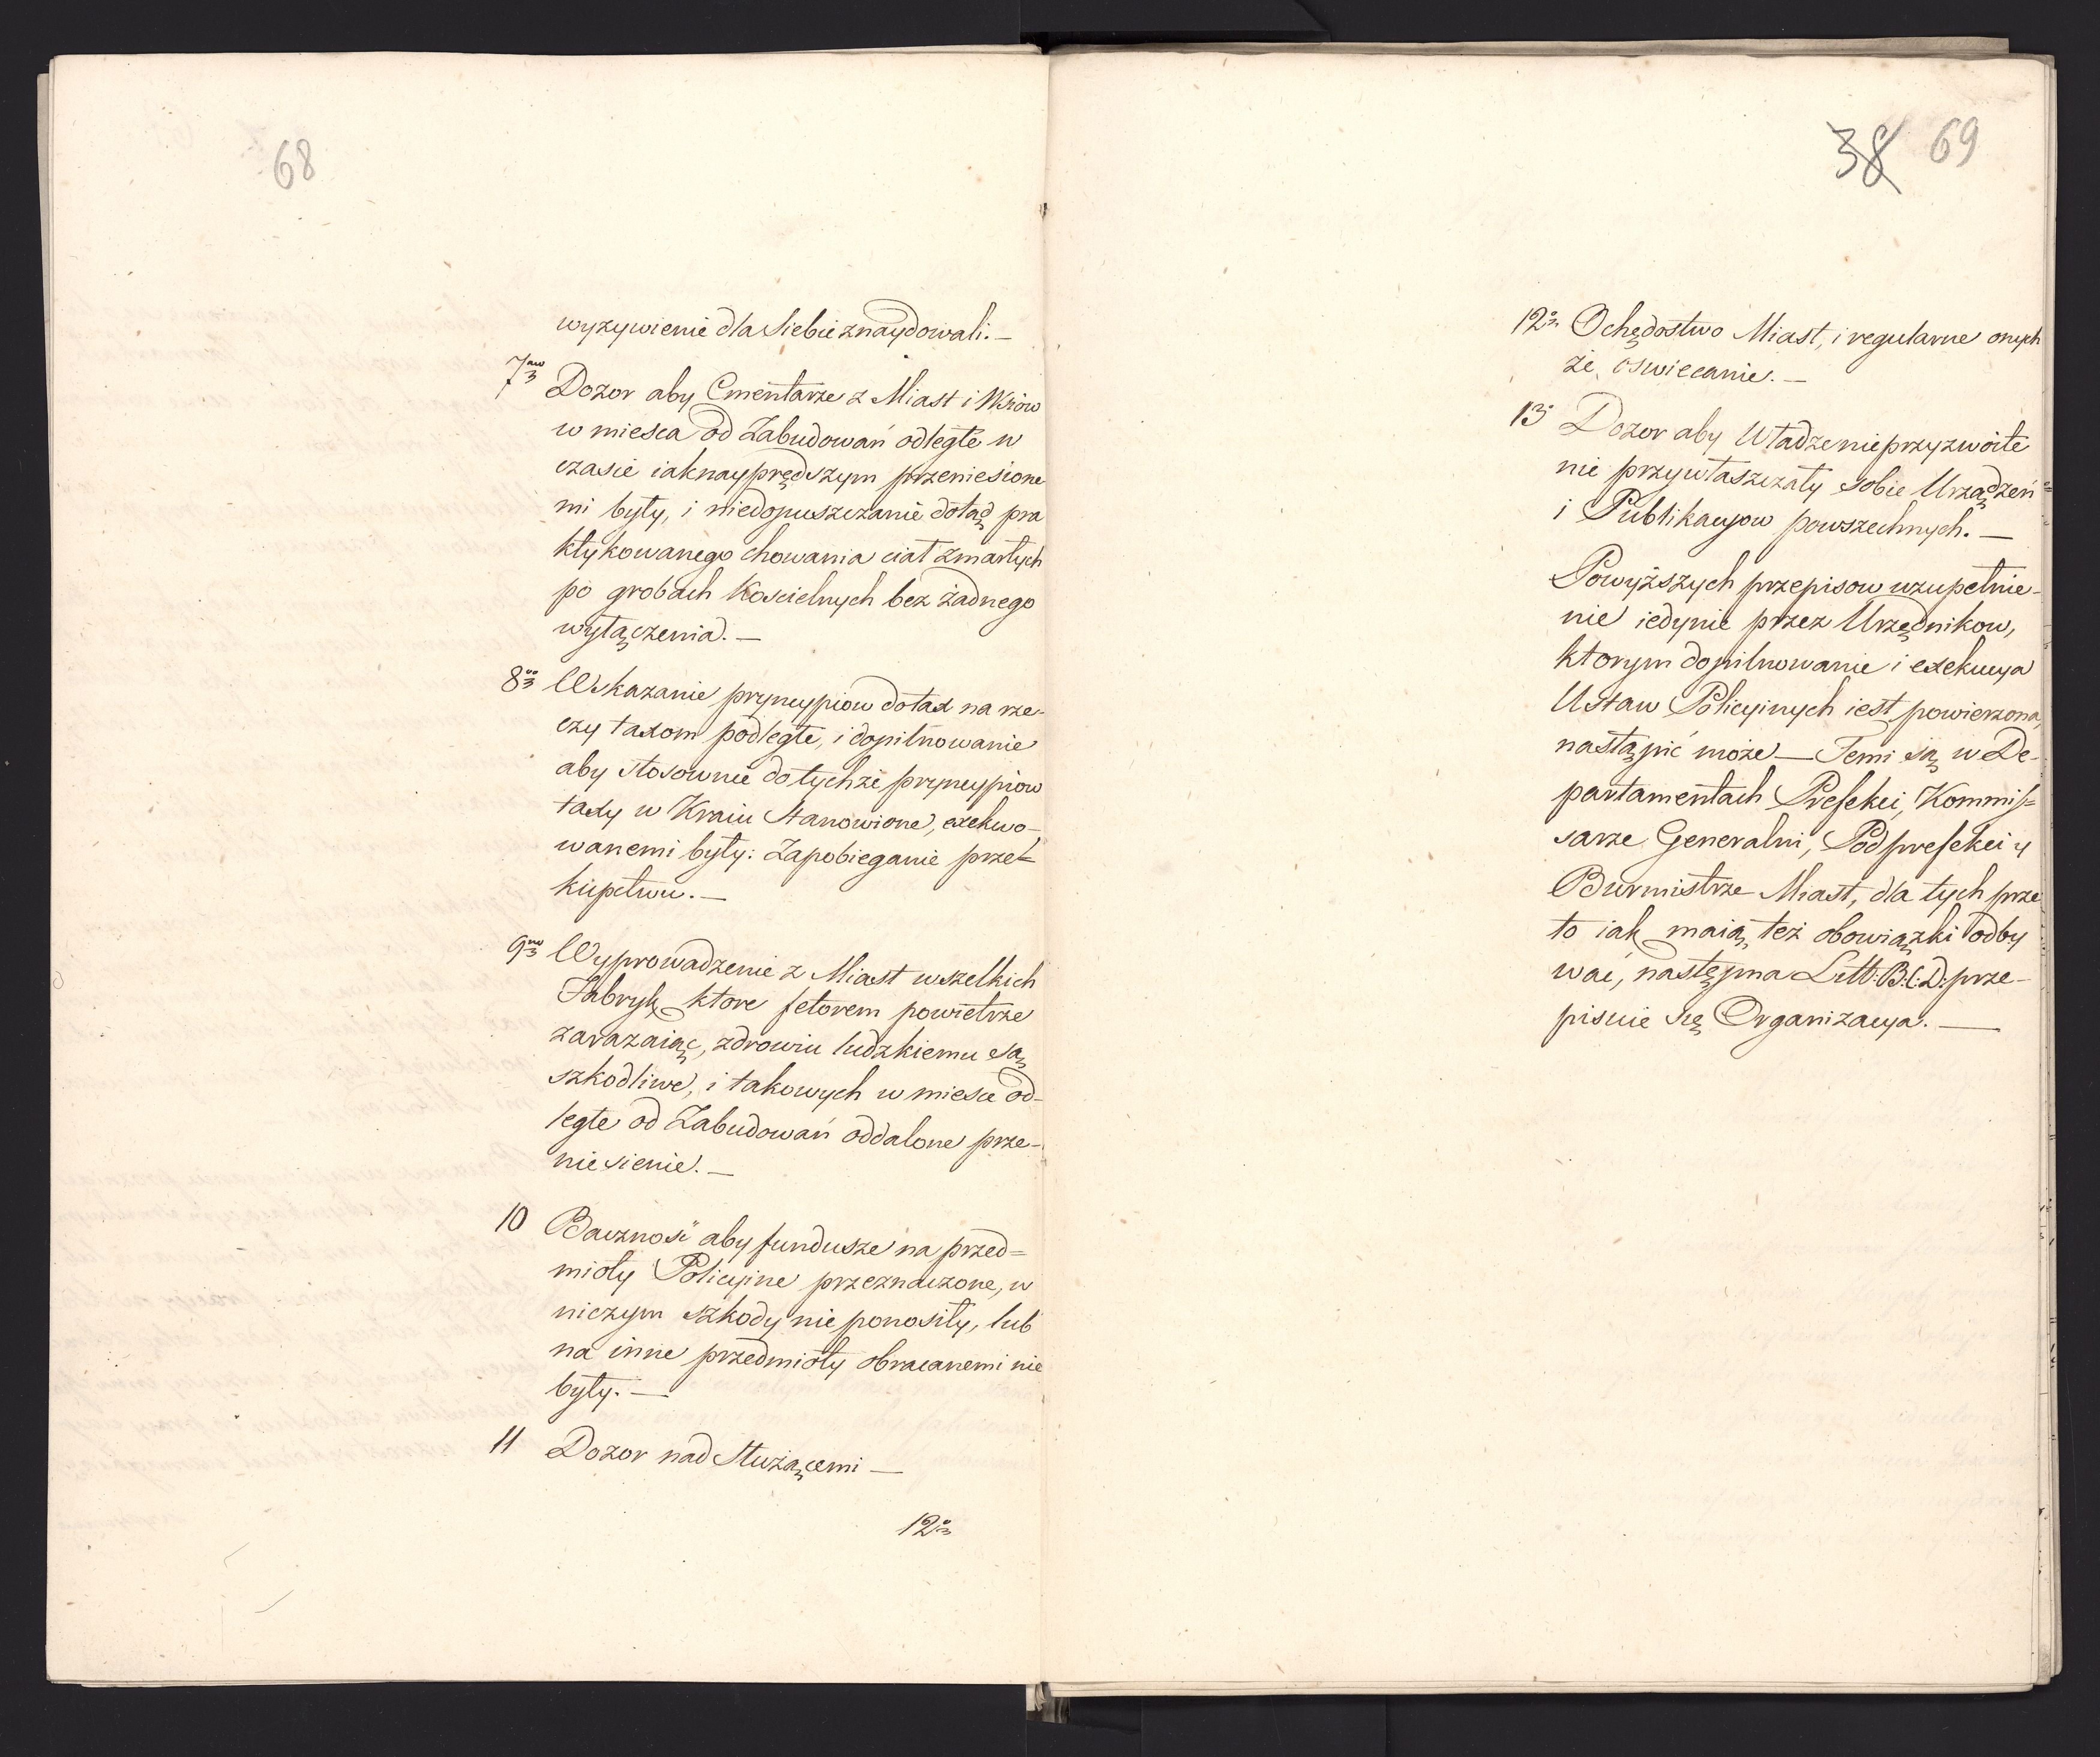 68
wyzywienie dla Siebie znaydowali. —
7mo Dozor aby Cmentarze z Miast i Wsiow
w miesca od Zabudowań odległe w
czasie iaknayprędszym przeniesione
mi były, i niedopuszczanie dotąd pra
ktykowanego chowania ciał zmarłych
po grobach Koscielnych bez żadnego
wyłączenia. —
8vo Wskazanie pryncypiow do tax na rze-
czy taxom podległe, i dopilnowanie
aby stosownie do tychże pryncypiow
taxy w Kraiu Stanowione, exekwo-
wanemi były: Zapobieganie prze=
kupctwu. —
9no Wyprowadzenie z Miast wszelkich
Fabryk ktore fetorem powietrze
zarazaiąc, zdrowiu ludzkiemu są
szkodliwe, i takowych w miesce od-
ległe od Zabudowań oddalone prze-
niesienie. —
10 Baczność aby fundusze na przed=
mioty Policyine przeznaczone, w
niczym szkody nie ponosiły, lub
na inne przedmioty obracanemi nie
były. —
11 Dozor nad Służącemi —
12o
38 69
12o Ochędostwo Miast, i regularne onych
że oswiecanie. —
13 Dozor aby Władze nieprzyzwoite
nie przywłaszczały sobie Urządzeń
i Publikacyow powszechnych. —
Powyższych przepisow uzupełnie-
nie iedynie przez Urzędnikow,
ktorym dopilnowanie i exekucya
Ustaw Policyinych iest powierzona,
nastąpić może — Temi są w De-
partamentach Prefekci, Kommis=
sarze Generalni, Podprefekci y
Burmistrze Miast, dla tych prze
to iak maią też obowiązki odby
wać, następna Litt: B: C: D: prze-
pisuie się Organizacya. —